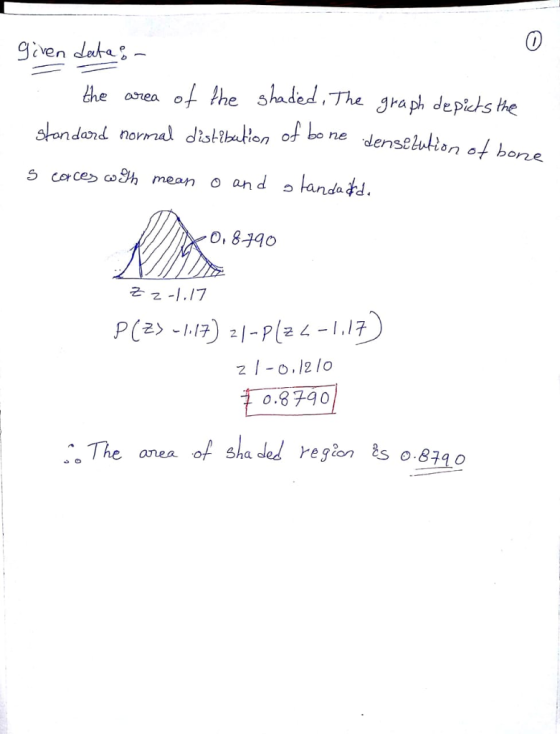 ①
given data:-
the area of the shaded, The graph depicts the
standard normal distibution of bone densetution of bone
s corces with mean 0 and standard.
0.8790
z = -1.17
P(Z> -1.17) = 1-P(z < -1.17)
= 1-0.1210
= 0.8790
∴ The area of shaded region is 0.8790